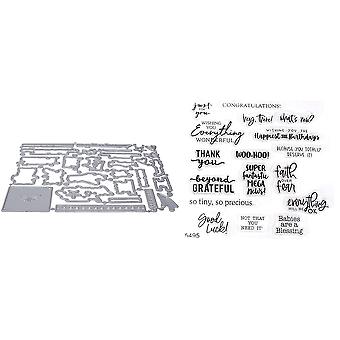 just
for
you
CONGRATULATIONS!
hey, there!
what's new?
WISHING
YOU
Everything
WONDERFUL
WISHING YOU THE
Happiest of Birthdays
THANK
YOU
WOO-HOO!
BECAUSE YOU TOTALLY
DESERVE IT!
beyond
GRATEFUL
SUPER
fantastic
MEGA
NEWS!
faith
OVER
fear
so tiny, so precious
everything
WILL BE
OK
Good
Luck!
NOT THAT
YOU
NEED IT
Babies
are a
Blessing